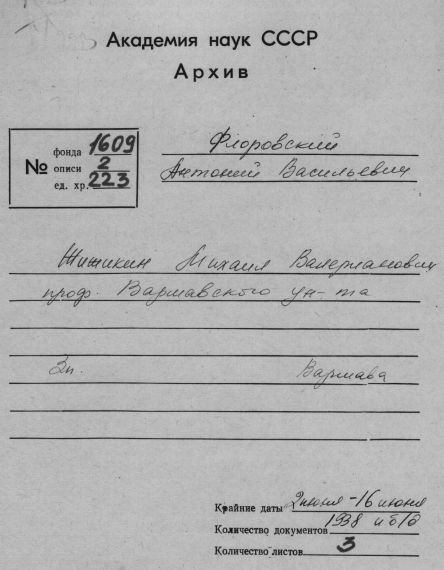 Академия наук СССР
Архив
№ фонда 1609
описи 2
ед. хр. 223
Флоровский
Антоний Васильевич
Шишикин Михаил Валерианович
проф. Варшавского ун-та
3п. Варшава
Крайние даты 2 июня - 16 июня
1938 и б/д
Количество документов
Количество листов 3